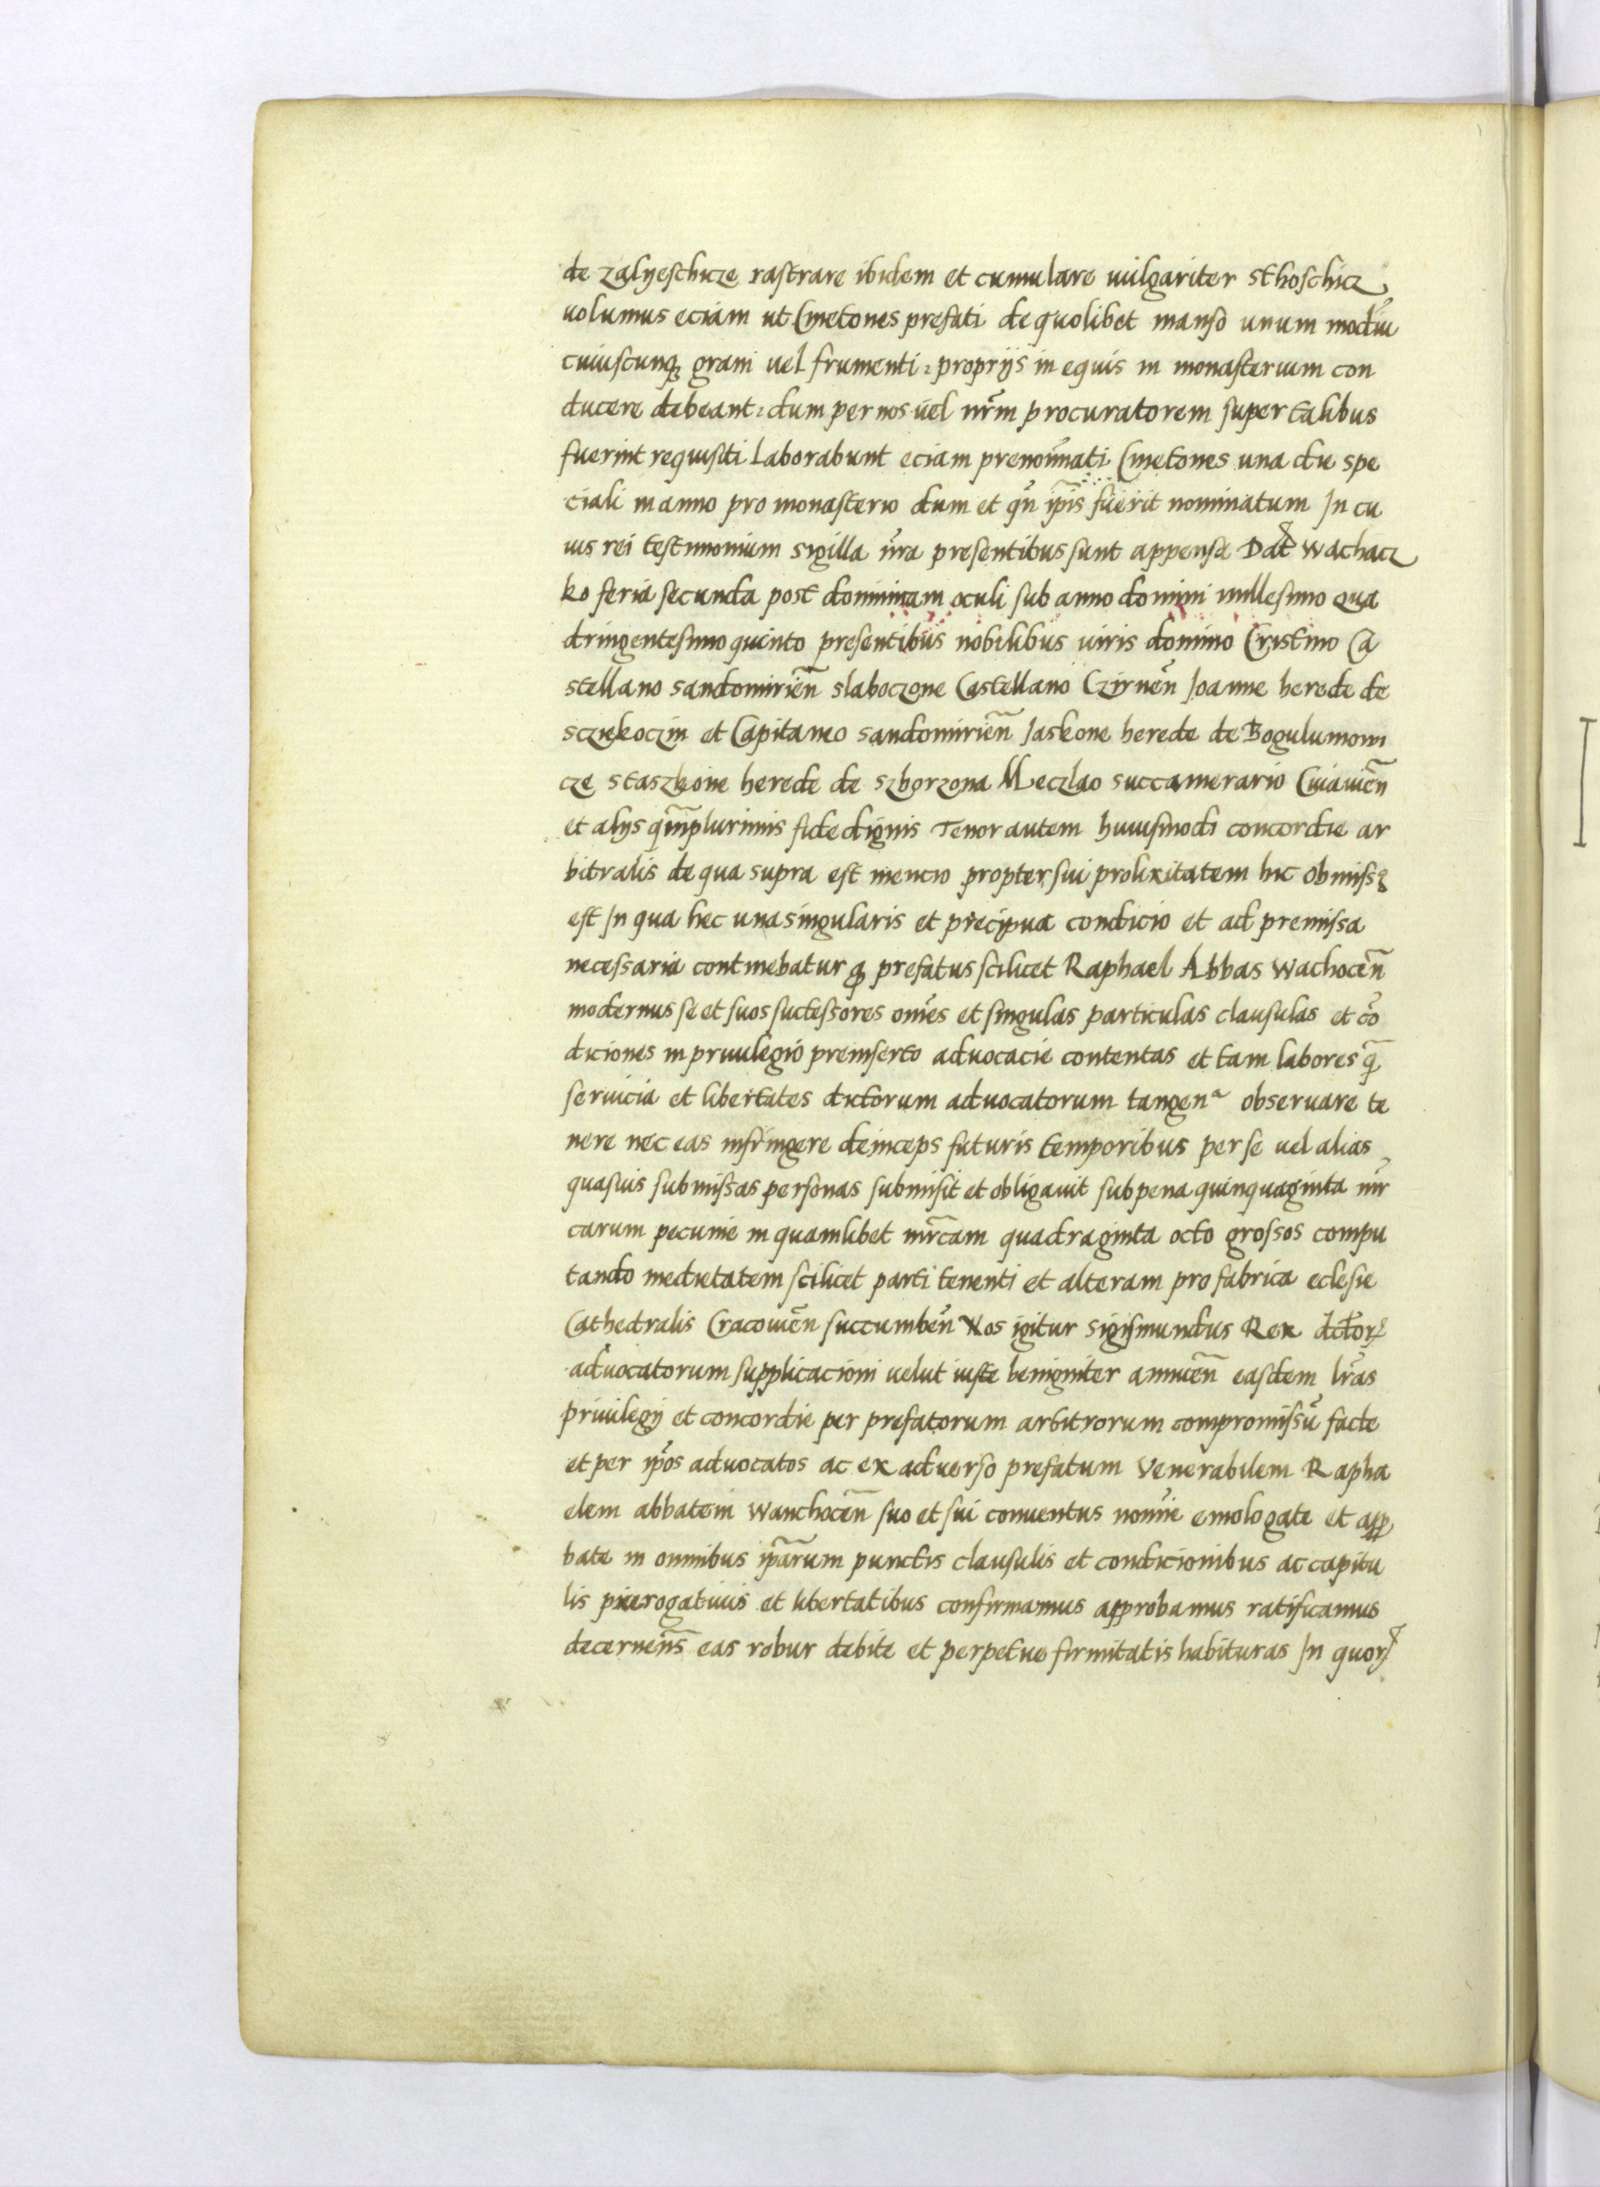 de zalyeschicze rastrare ibidem et cumulare vulgariter sthoschicz
volumus eciam ut Cmetones prefati de quolibet manso unum modiū
cuiuscunq̢ grani vel frumenti: proprijs in equis in monasterium con
ducere debeant: dum per nos vel nr̄m procuratorem super talibus
fuerint requisiti Laborabunt eciam prenoīnati Cmetones una die spe
ciali in anno pro monasterio dum et qn̄ ip̄is fuerit nominatum In cu
ius rei testimonium sigilla nr̄a presentibus sunt appensa Dat̄ Wachacz
ko feria secunda post dominicam oculi sub anno domini millesimo qua
dringentesimo quinto presentibus nobilibus viris domino Cristino Ca
stellano sandomirien̄ slaboczone Castellano Czirnen̄ Joanne herede de
sczyekoczin et Capitaneo sandomirien̄ Jaskone herede de Bogulumowi
cze staszkone herede de szborzona Meczlao succamerario Cuiauien̄
et alijs qm̄plurimis fidedignis Tenor autem huiusmodi concordie ar
bitralis de qua supra est mencio propter sui prolixitatem hic obmissꝫ
est In qua hec una singularis et precipua condicio et ad premissa
necessaria continebatur ꝙ prefatus scilicet Raphael Abbas Wachocen̄
modernus se et suos successores om̄es et singulas particulas clausulas et cō
diciones in privilegio preinserto advocacie contentas et tam labores q̄
servicia et libertates dictorum advocatorum tangenᵃ observare te
nere nec eas infringere deinceps futuris temporibus per se vel alias
quasvis submissas personas submisit et obligavit sub pena quinquaginta mr̄
carum pecunie in quamlibet mr̄cam quadraginta octo grossos compu
tando medietatem scilicet parti tenenti et alteram pro fabrica eclesie
Cathedralis Cracovien̄ succumben̄ Nos igitur Sigismundus Rex dictorꝝ
advocatorum supplicacioni velut iuste benigniter annuen̄ easdem lr̄as
privilegij et concordie per prefatorum arbitrorum compromissū facte
et per ip̄os advocatos ac ex adverso prefatum Venerabilem Rapha
elem abbatem Wanchocen̄ suo et sui conventus noīe emologate et app̱
bate in omnibus ip̄arum punctis clausulis et condicionibus ac capitu
lis prerogativis et libertatibus confirmamus approbamus ratificamus
decernen̄s eas robur debite et perpetue firmitatis habituras In quorꝝ